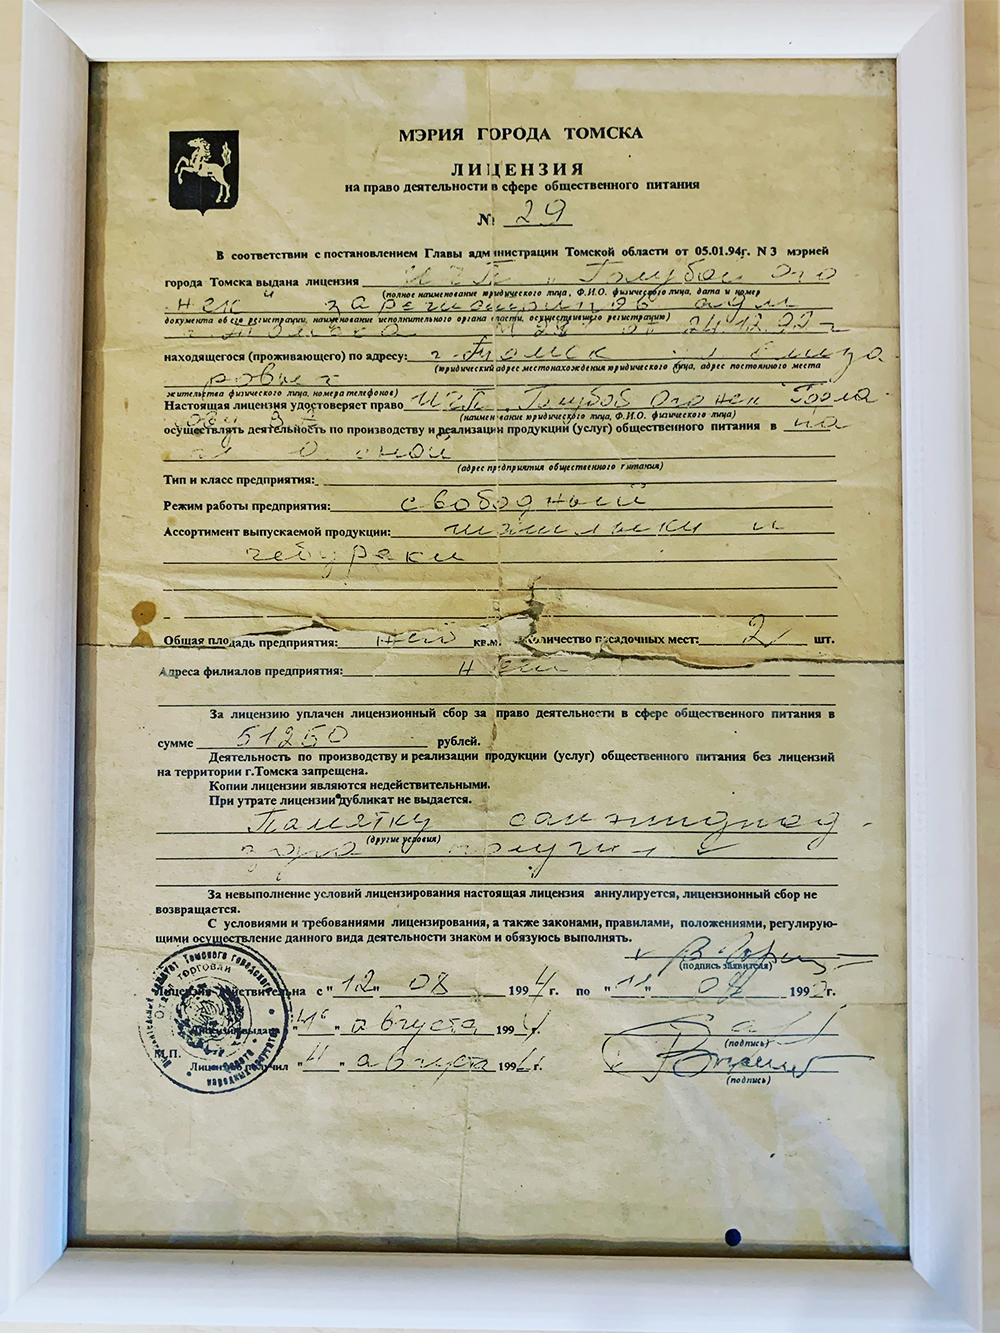 МЭРИЯ ГОРОДА ТОМСКА
ЛИЦЕНЗИЯ
на право деятельности в сфере общественного питания
№ 29
В соответствии с постановлением Главы администрации Томской области от 05.01.94г. N 3 мэрией
города Томска выдана лицензия ИЧП "Голубой Ого
(полное наименование юридического лица, Ф.И.О. физического лица, дата и номер
нек"
документа об его регистрации, наименование исполнительного органа власти, осуществившего регистрацию)
24.12.92 г
находящегося (проживающего) по адресу: г. Томск
(юридический адрес местонахождения юридического лица, адрес постоянного места
жительства физического лица, номера телефонов)
Настоящая лицензия удостоверяет право ИЧП "Голубой Огонек"
(наименование юридического лица, Ф.И.О. физического лица)
осуществлять деятельность по производству и реализации продукции (услуг) общественного питания в
(адрес предприятия общественного питания)
Тип и класс предприятия:
Режим работы предприятия: свободный
Ассортимент выпускаемой продукции: шашлыки и
чебуреки
Общая площадь предприятия: кв.м. Количество посадочных мест: 2 шт.
Адреса филиалов предприятия:
За лицензию уплачен лицензионный сбор за право деятельности в сфере общественного питания в
сумме 51250 рублей.
Деятельность по производству и реализации продукции (услуг) общественного питания без лицензий
на территории г.Томска запрещена.
Копии лицензии являются недействительными.
При утрате лицензии дубликат не выдается.
Памятку санэпиднад-
(другие условия)
зора получил
За невыполнение условий лицензирования настоящая лицензия аннулируется, лицензионный сбор не
возвращается.
С условиями и требованиями лицензирования, а также законами, правилами, положениями, регулирую-
щими осуществление данного вида деятельности знаком и обязуюсь выполнять.
(подпись заявителя)
Лицензия действительна с "12" 08 1994 г. по "11" 08 199 г.
Лицензия выдана "11" августа 1994 г.
(подпись)
М.П.
Лицензию получил "11" августа 1994 г.
(подпись)
Томского городского
Отдел торговли
народных депутатов